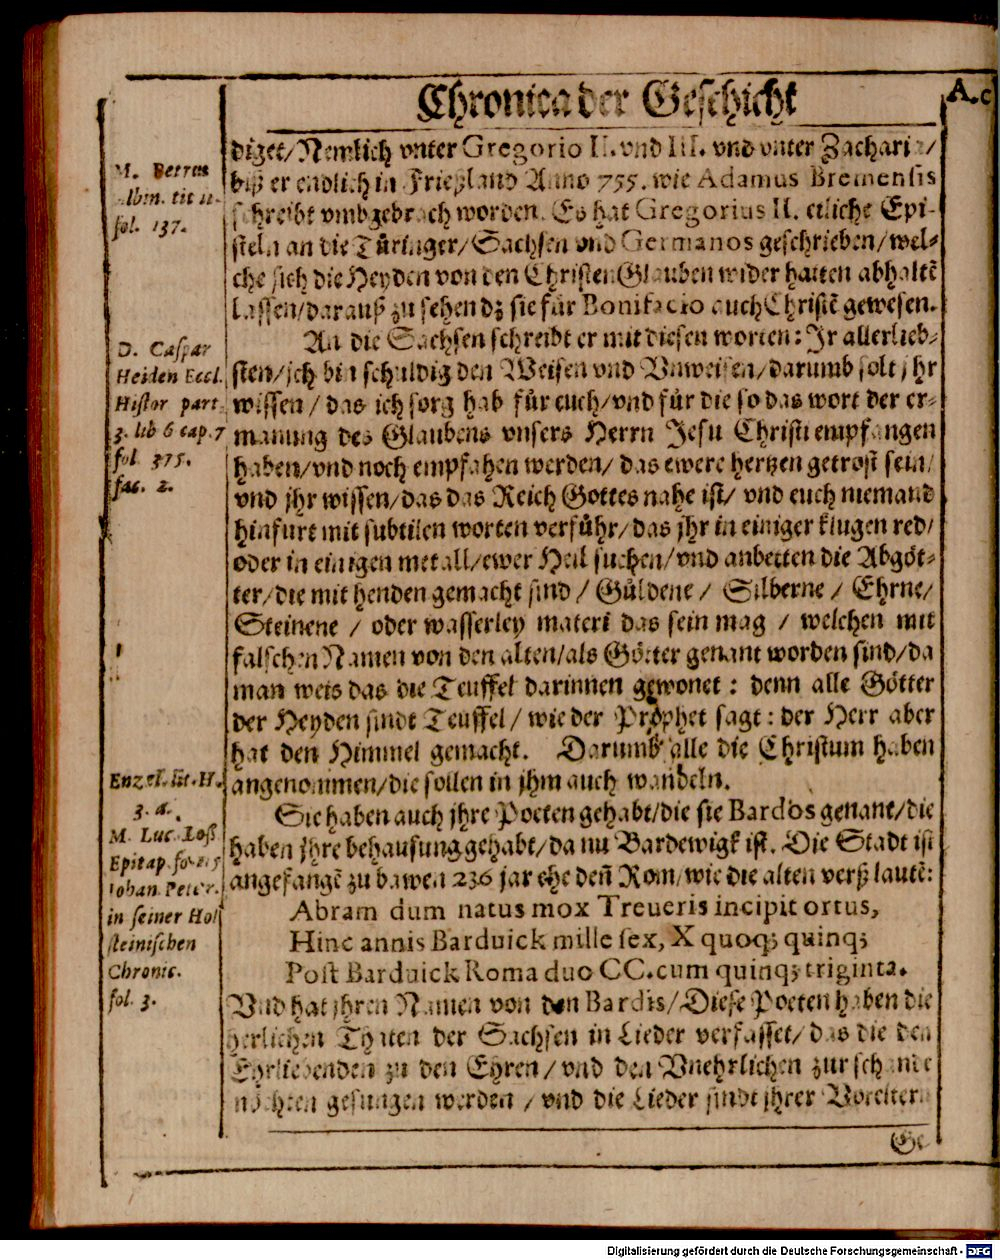 Chronica der Geschicht
A.c
diget/Nemlich vnter Gregorio II. vnd III. vnd vnter Zacharia/
biß er endlich in Frießland Anno 755. wie Adamus Bremensis
schreibt vmbgebrach worden. Es hat Gregorius II. etliche Epi-
steln an die Türinger/Sachsen vnd Germanos geschrieben/wel-
che sich die Heyden von den Christen Glauben wider hatten abhaltē
lassen/darauß zu sehen dz sie für Bonifacio auch Christē gewesen.
An die Sachsen schreibt er mit diesen worten: Ir allerlieb-
sten/ich bin schuldig den Weisen vnd Vnweisen/darumb solt jhr
wissen/das ich sorg hab für euch/vnd für die so das wort der er-
manung des Glaubens vnsers Herrn Jesu Christi empfangen
haben/vnd noch empfahen werden/das ewere hertzen getrost sein/
vnd jhr wissen/das das Reich Gottes nahe ist/vnd euch niemand
hinfurt mit subtilen worten verführ/das jhr in einiger klugen red/
oder in einigen metall/ewer Heil suchen/vnd anbetten die Abgöt-
ter/die mit henden gemacht sind/Güldene/Silberne/Ehrne/
Steinene/oder wasserley materi das sein mag/welchen mit
falschen Namen von den alten/als Götter genant worden sind/da
man weis das die Teuffel darinnen gewonet: denn alle Götter
der Heyden sindt Teuffel/wie der Prophet sagt: der Herr aber
hat den Himmel gemacht. Darumb alle die Christum haben
angenommen/die sollen in jhm auch wandeln.
Sie haben auch jhre Poeten gehabt/die sie Bardos genant/die
haben jhre behausung gehabt/da nu Bardewigk ist. Die Stadt ist
angefangē zu bawen 236 jar ehe deñ Rom/wie die alten verß lautē:
Abram dum natus mox Treueris incipit ortus,
Hinc annis Barduick mille sex, X quoq; quinq;
Post Barduick Roma duo CC. cum quinq; triginta.
Vnd hat jhren Namen von den Bardis/Diese Poeten haben die
herlichen Thaten der Sachsen in Lieder verfasset/das die den
Ehrliebenden zu den Ehren/vnd den Vnehrlichen zur schande
möchten gesungen werden/vnd die Lieder sindt jhrer Voreltern
Ge
M. Petrus
Albin. tit
fol. 137.
D. Caspar
Heiden Eccl.
Histor part.
3. lib 6 cap. 7
fol 375.
fac. 2.
Enzel. lit. H.
3. a.
M. Luc. Loß
Epitap. fo
Iohan. Peter.
in seiner Hol
steinischen
Chronic.
fol. 3.
Digitalisierung gefördert durch die Deutsche Forschungsgemeinschaft - DFG